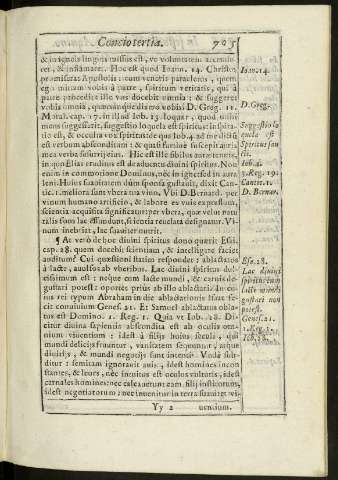 Concio tertia. 725
& in ignois linguis missus est, vt voluntatem accende-
ret, & inflamaret. Hoc est quod Ioann. 14. Christus
promiserat Apostolis: cum venerit paraclitus, quem
ego mittam vobis à patre, spiritum veritatis, qui à
patre procedit ille vos docebit omnia: & suggeret
vobis omnia, quæcunque dixero vobis D. Greg. 11.
Moral. cap. 17. in illud Iob. 13. loquar, quod
mens suggesserit, suggestio loquela est spiritus: inspira-
tio est, & occulta vox spiritus de qua Iob. 4. ad me dictus
est verbum absconditum: & quasi furtiuè suscepit auris
mea verba susurrij eius. Hic est ille sibilus auræ tenuis, in
quo Elias eruditus est de aduentu diuini Spiritus. Non
enim in commotione Dominus, nec in igne sed in aura
leni. Huius suauitatem dum sponsa gustauit, dixit Can-
tic. 1. meliora sunt vbera tua vino. Vbi D. Bernard. per
vinum humano artificio, & labore ex vuis expressum,
scientia acquisita significatur: per vbera, quæ velut na-
tales suos lac effundunt, scientia reuelata designatur. Vi-
num inebriat, lac suauiter nutrit.
¶ At verò de hoc diuini spiritus dono quærit Esai.
cap. 28. quem docebit scientiam, & intelligere faciet
auditum? Cui quæstioni statim respondet: ablactatos
à lacte, auulsos ab vberibus. Lac diuini spiritus dul-
cissimum est: neque cum lacte mundi, & carnis de-
gustari potest: oportet prius ab illo ablactari. In cu-
ius rei typum Abraham in die ablactationis Isaac fe-
cit conuiuium Genes. 21. Et Samuel ablactatus obla-
tus est Domino. 1. Reg. 1. Quia vt Iob. 28. Di-
citur diuina sapientia abscondita est ab oculis om-
nium viuentium: idest à filijs huius seculi, qui
mundi delicijs fruuntur, vanitatem sequuntur, atque
diuitijs, & mundi negotijs sunt intenti. Vnde subdi-
tur: semitam ignorauit auis, idest homines incon
stantes, & leues, nec intuitus est oculus vulturis, idest
carnales homines: nec calcauerunt eam filij institorum,
idest negotiatorum: nec inuenitur in terra suauiter vi-
Yy 2 uentium.
Ioan. 14.
D. Greg.
Suggestio lo
quela est
Spiritus san
cti.
Iob. 4.
3. Reg. 19.
Cantic. 1.
D. Bernar.
Esa. 28.
Lac diuini
spiritus cum
lacte mundi
gustari non
potest.
Genes. 21.
1. Reg. 1.
Iob. 28.